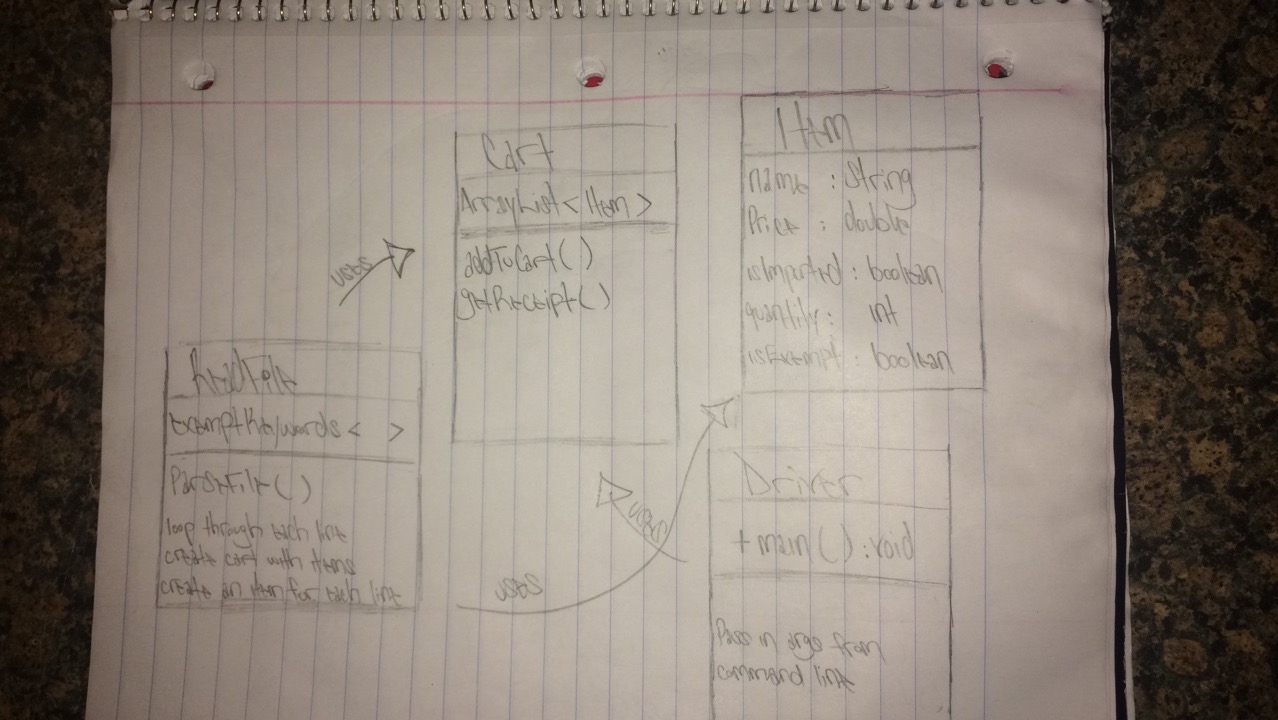 Cart
ArrayList<Item>
addToCart()
getReceipt()
Item
name : String
Price : double
isImported : boolean
quantity : int
isExempt : boolean
uses
ReadFile
ExemptKeywords< >
ParseFile()
loop through each line
create cart with items
create an item for each line
uses
uses
Driver
+main() : void
Pass in args from
command line